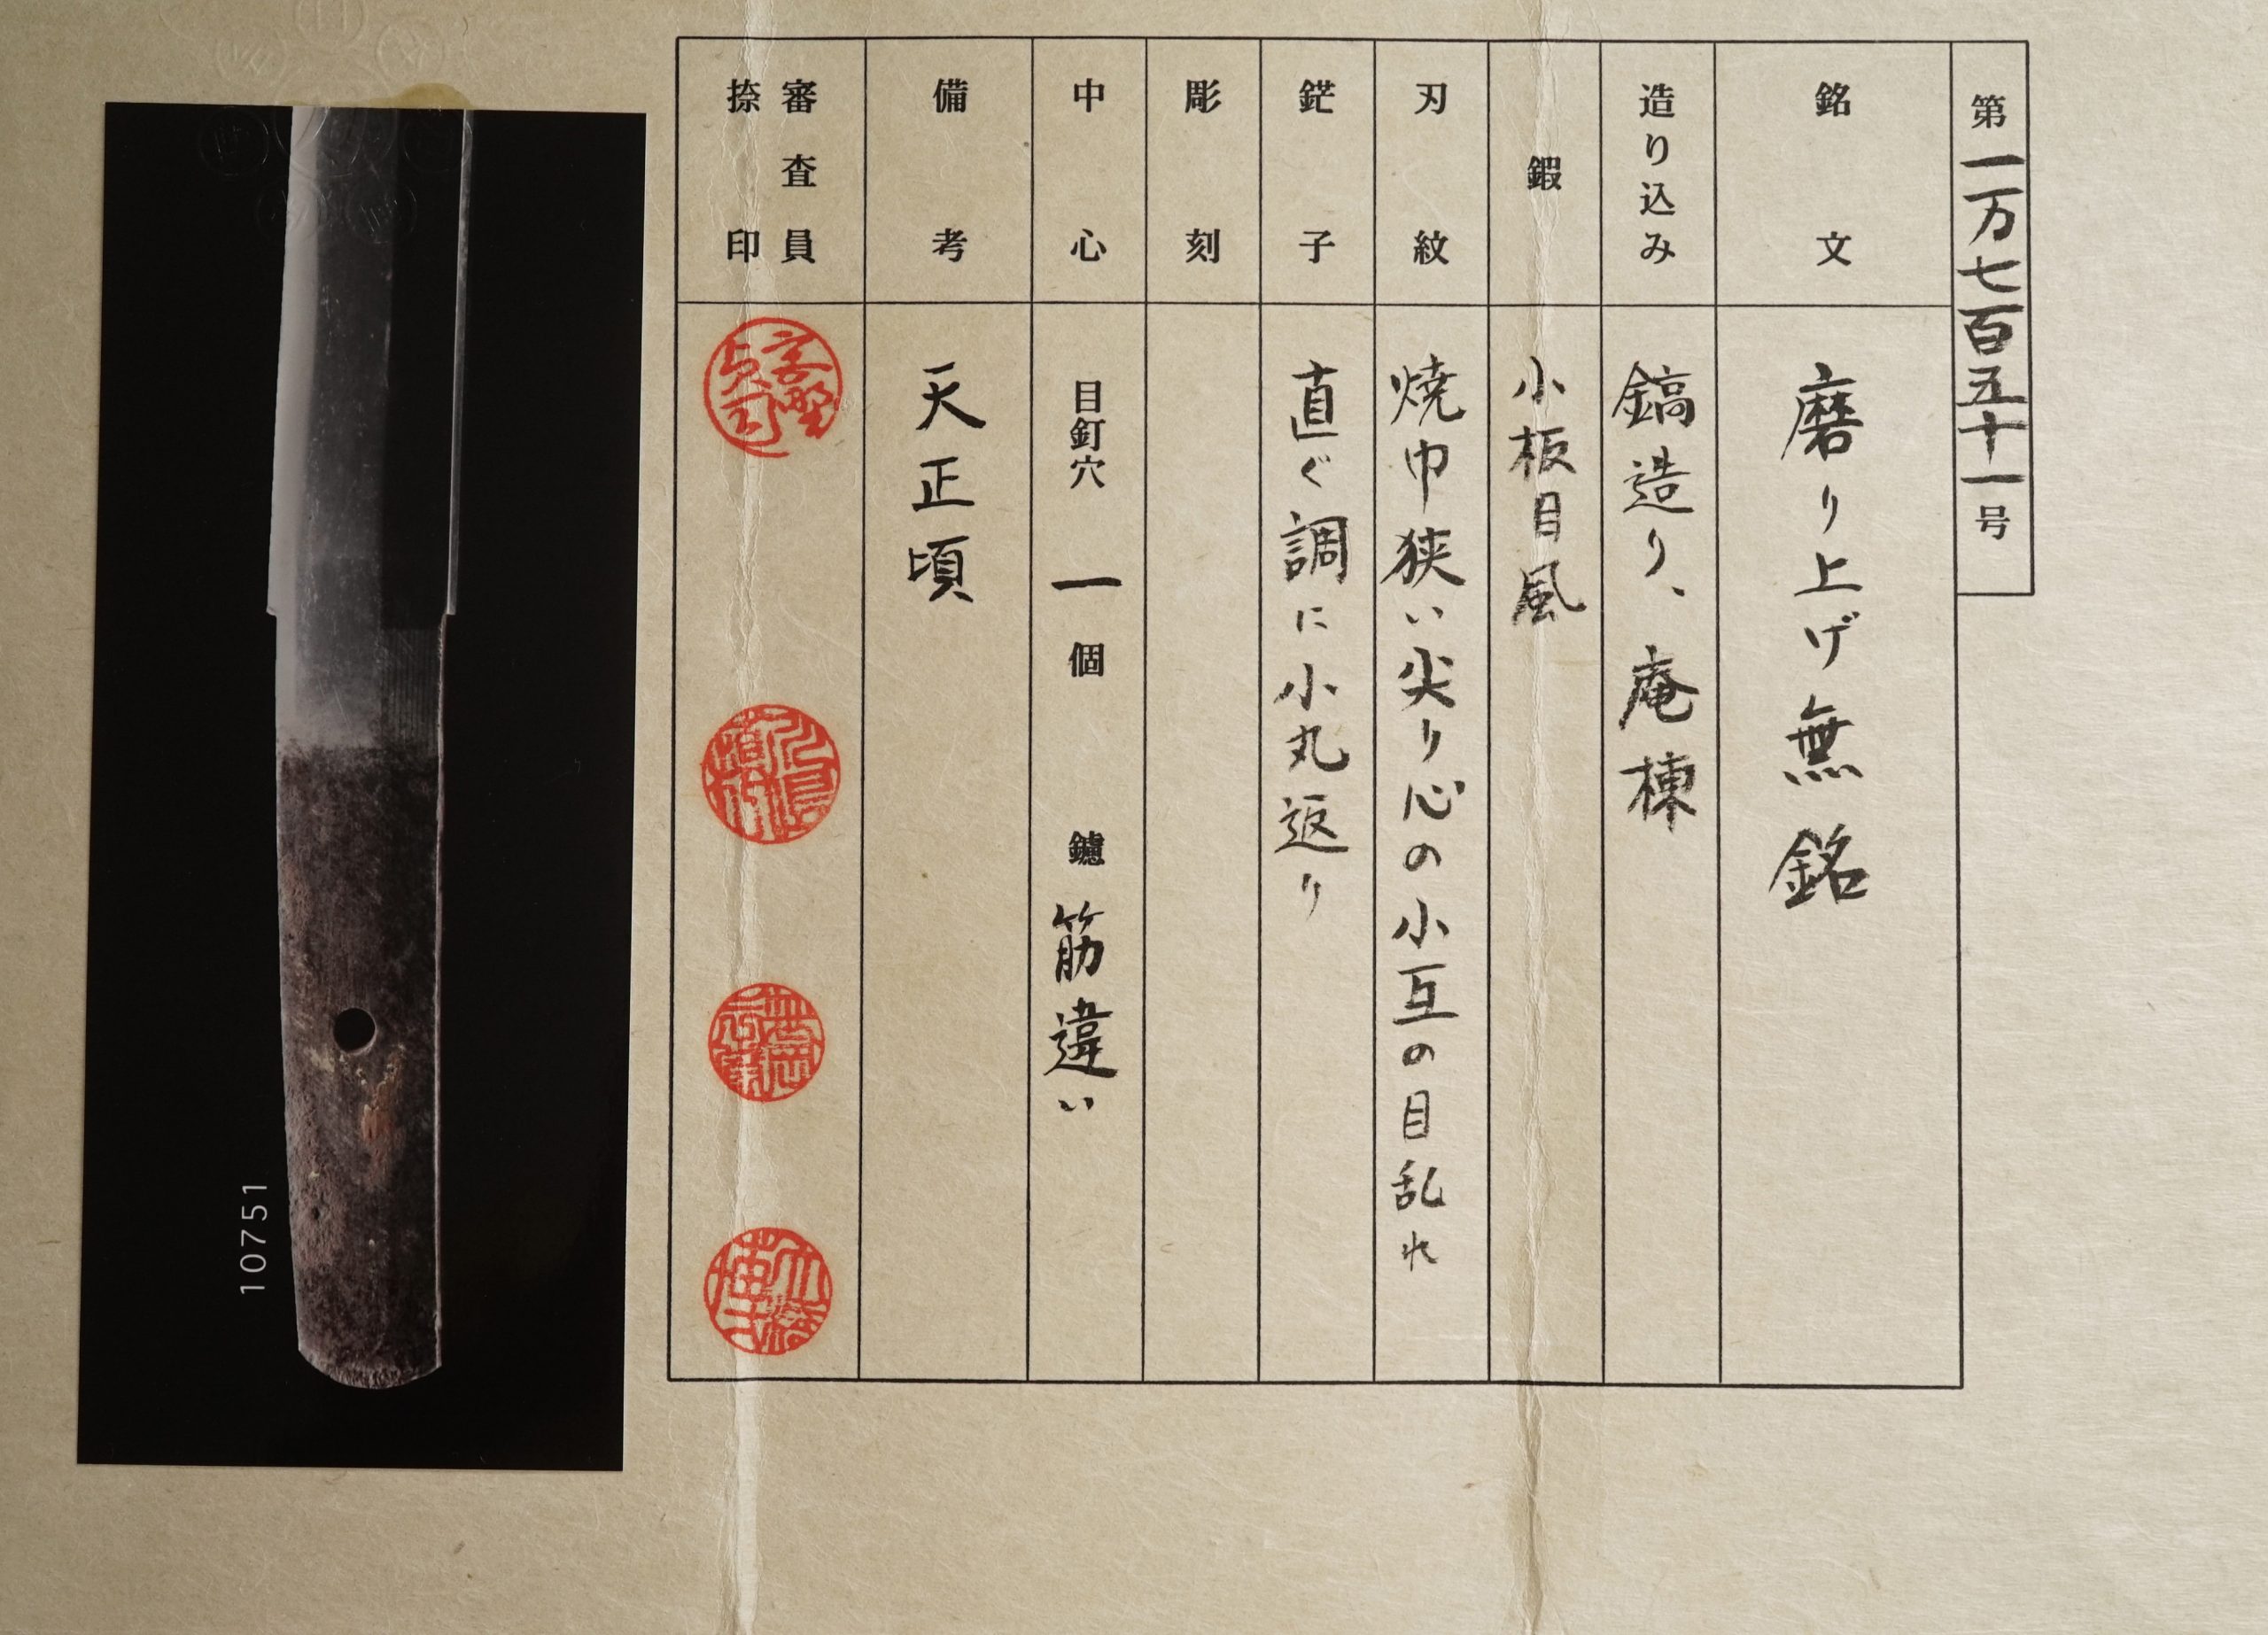 第一万七百五十一号
銘文 磨り上げ無銘
造り込み 鎬造り、庵棟
鍜 小板目風
刃紋 焼巾狭い尖り心の小互の目乱れ
鋩子 直ぐ調に小丸返り
彫刻
中心 目釘穴 一 個 鑢 筋違い
備考 天正頃
審査員
捺印
10751